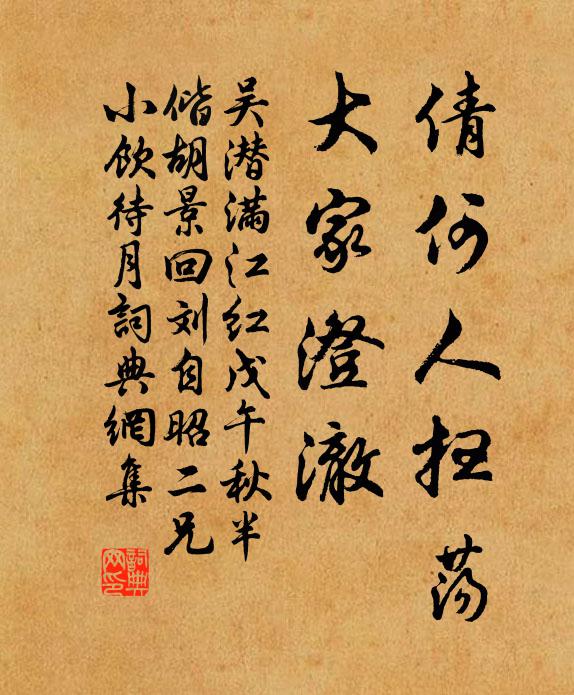 倩何人扫荡
大家澄澈
吴潜满江红戊午秋半
偕胡景回刘自昭二兄
小饮待月詞典網集
詞典
网印